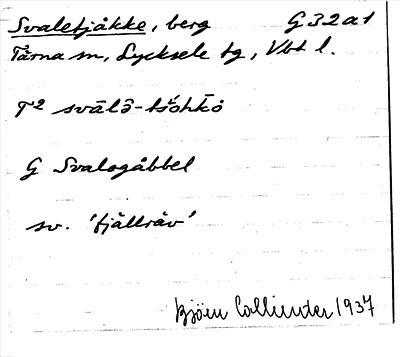 Svaletjåkke, berg G32a1
Tärna sn, Lycksele lg, Vbt l.
T² svālō-tšohkō
G Svalogåbbel
sv. 'fjällräv'
Björn Collinder 1937